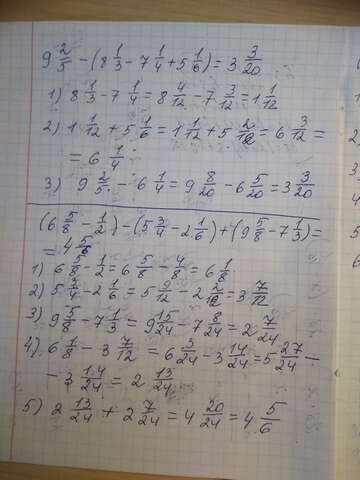 9 2/5 - (8 1/3 - 7 1/4 + 5 1/6) = 3 3/20
1) 8 1/3 - 7 1/4 = 8 4/12 - 7 3/12 = 1 1/12
2) 1 1/12 + 5 1/6 = 1 1/12 + 5 2/12 = 6 3/12 =
= 6 1/4
3) 9 2/5 - 6 1/4 = 9 8/20 - 6 5/20 = 3 3/20
(6 5/8 - 1/2) - (5 3/4 - 2 1/6) + (9 5/8 - 7 1/3) =
= 4 5/6
1) 6 5/8 - 1/2 = 6 5/8 - 4/8 = 6 1/8
2) 5 3/4 - 2 1/6 = 5 9/12 - 2 2/12 = 3 7/12
3) 9 5/8 - 7 1/3 = 9 15/24 - 7 8/24 = 2 7/24
4) 6 1/8 - 3 7/12 = 6 3/24 - 3 14/24 = 5 27/24 -
- 3 14/24 = 2 13/24
5) 2 13/24 + 2 7/24 = 4 20/24 = 4 5/6